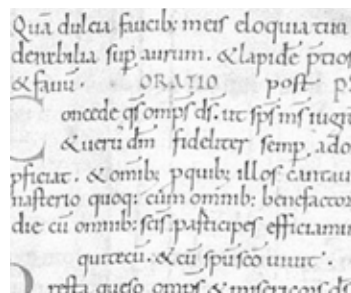 Quā dulcia faucib; meis eloquia tua
derabilia sup aurum. & lapidē p̄tios
& favū. ORATIO post p
Concede q̄s omp̄s d̄s. ut sp̄s m̄s iugit
& uerū d̄m fideliter semp ado
pficiat. & omib; p quib; illos cantaui
nasterio quoq; cum omnib; benefactor
die cū omnib; sc̄is. participes efficiamur
qui tecū. & cū sp̄u sc̄o uiuit.
resta queso omp̄s & misericors d̄s